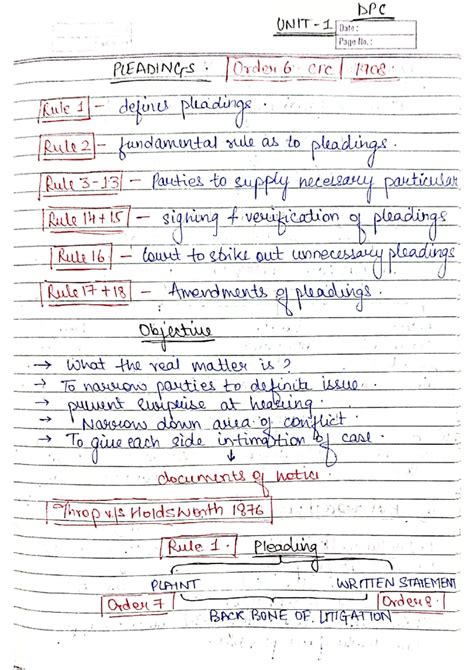 DPC
UNIT-1
Date:
Page No.:
PLEADINGS. Order 6 CPC 1908.
Rule 1 - defines pleadings.
Rule 2 - fundamental rule as to pleadings.
Rule 3-13 - Parties to supply necessary particular
Rule 14+15 - signing & verification of pleadings
Rule 16 - Court to strike out unnecessary pleadings
Rule 17+18 - Amendments of pleadings.
Objective
→ What the real matter is?
→ To narrow parties to definite issue.
→ prevent surprise at hearing.
→ Narrow down area of conflict.
→ To give each side intimation of case.
↓
documents of notice.
Throp v/s Holdsworth 1876
Rule 1. Pleading.
PLAINT WRITTEN STATEMENT
Order 7 Order 8.
BACK BONE OF LITIGATION